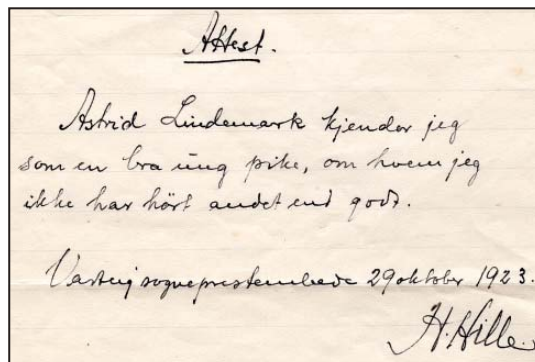 Attest.
Astrid Lindemark kjender jeg
som en bra ung pike, om hvem jeg
ikke har hört andet end godt.
Varteig sogneprestembede 29 oktober 1923.
H. Hille.